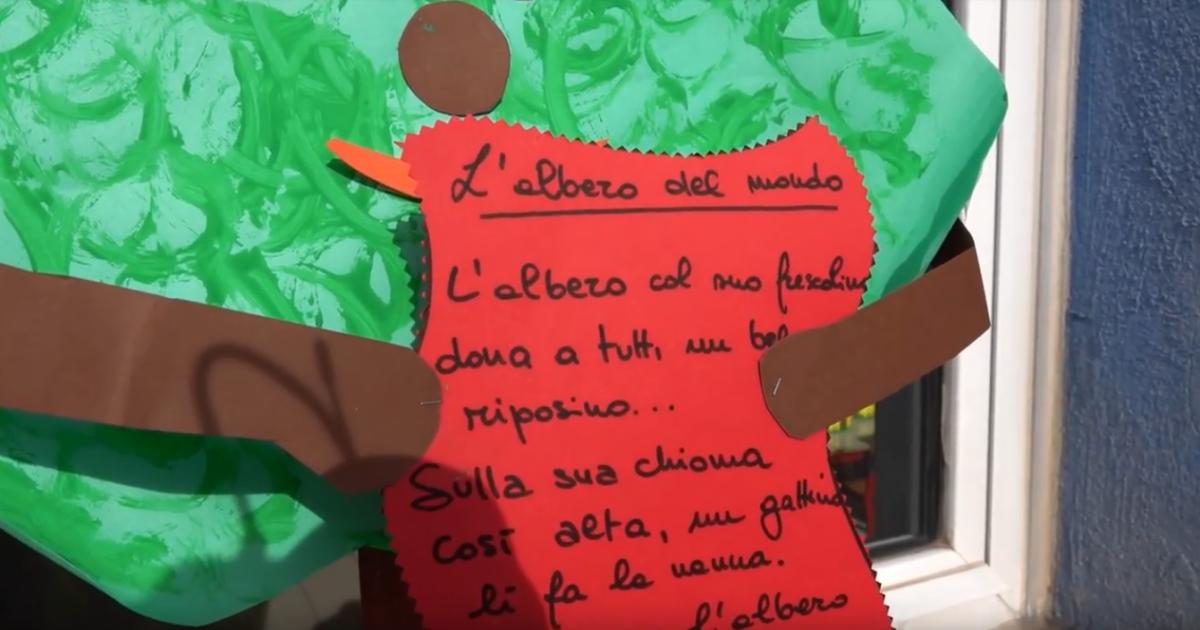 L'albero del mondo
L'albero col suo frescolino
dona a tutti un bel
riposino...
Sulla sua chioma
così alta, un gattino
li fa la nanna.
l'albero